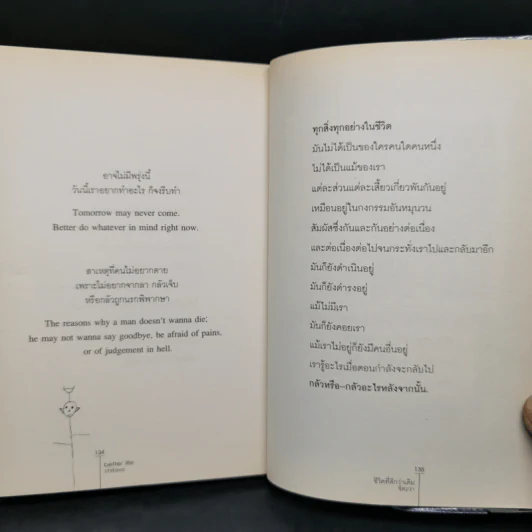 อาจไม่มีพรุ่งนี้
วันนี้เราอยากทำอะไร ก็จงรีบทำ
Tomorrow may never come.
Better do whatever in mind right now.
สาเหตุที่คนไม่อยากตาย
เพราะไม่อยากจากลา กลัวเจ็บ
หรือกลัวถูกนรกพิพากษา
The reasons why a man doesn't wanna die;
he may not wanna say goodbye, be afraid of pains,
or of judgement in hell.
134
better life
ทุกสิ่งทุกอย่างในชีวิต
มันไม่ได้เป็นของใครคนใดคนหนึ่ง
ไม่ได้เป็นแม้ของเรา
แต่ละส่วนแต่ละเสี้ยวเกี่ยวพันกันอยู่
เหมือนอยู่ในกงกรรมอันหมุนวน
สัมผัสซึ่งกันและกันอย่างต่อเนื่อง
และต่อเนื่องต่อไปจนกระทั่งเราไปและกลับมาอีก
มันก็ยังดำเนินอยู่
มันก็ยังดำรงอยู่
แม้ไม่มีเรา
มันก็ยังคอยเรา
แม้เราไม่อยู่ก็ยังมีคนอื่นอยู่
เรารู้อะไรเมื่อตอนกำลังจะกลับไป
กลัวหรือ--กลัวอะไรหลังจากนั้น.
135
ชีวิตที่ดีกว่าเดิม